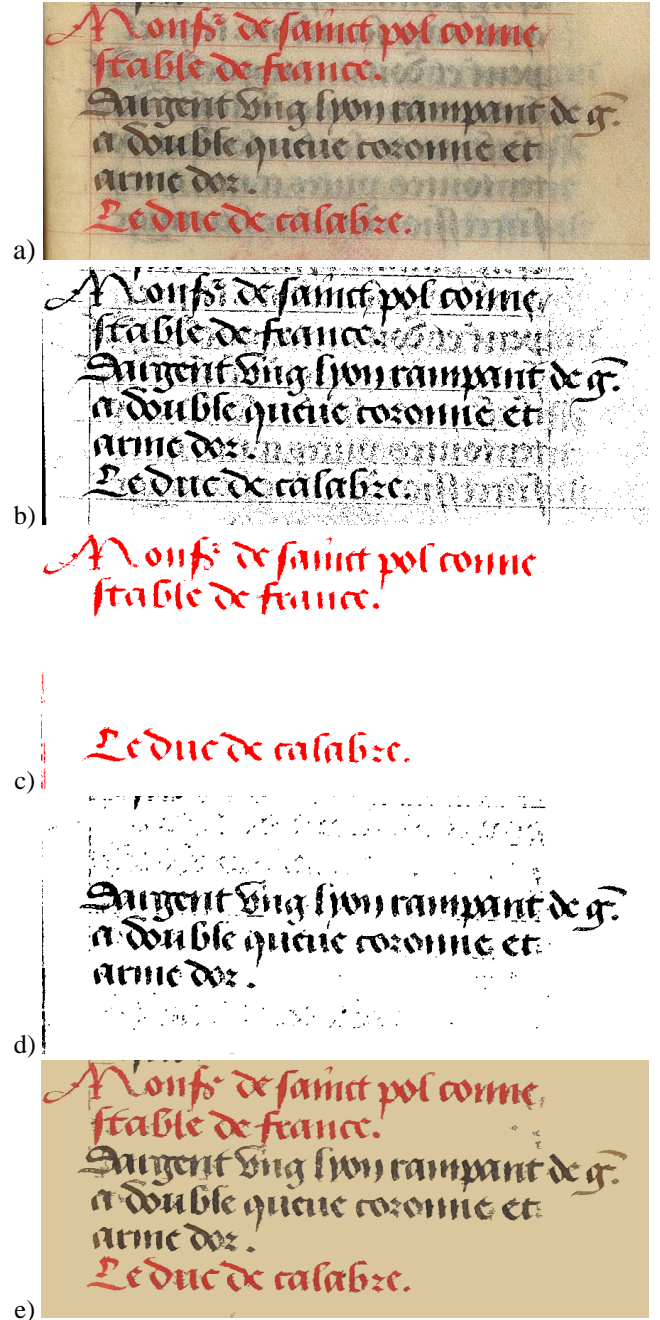 Monsr de sainct pol conne
stable de france.
Dargent vng lyon rampant de g.
a double queue coronne et
arme dor.
Le duc de calabre.
a)
Monsr de sainct pol conne
stable de france.
Dargent vng lyon rampant de g.
a double queue coronne et
arme dor.
Le duc de calabre.
b)
Monsr de sainct pol conne
stable de france.
Le duc de calabre.
c)
Dargent vng lyon rampant de g.
a double queue coronne et
arme dor.
d)
Monsr de sainct pol conne
stable de france.
Dargent vng lyon rampant de g.
a double queue coronne et
arme dor.
Le duc de calabre.
e)